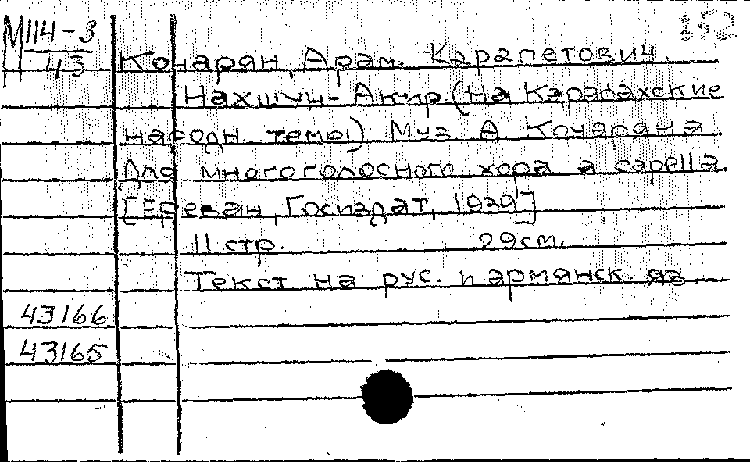 М114-3
43
152
Кочарян, Арам Карапетович.
Нахшун-Акир. (На Карабахские
народн. темы) Муз. А. Кочаряна.
Для многоголосного хора a capella.
[Ереван, Госиздат, 1939]
11 стр. 29 см.
Текст на рус. и армянск. яз.
43166
43165